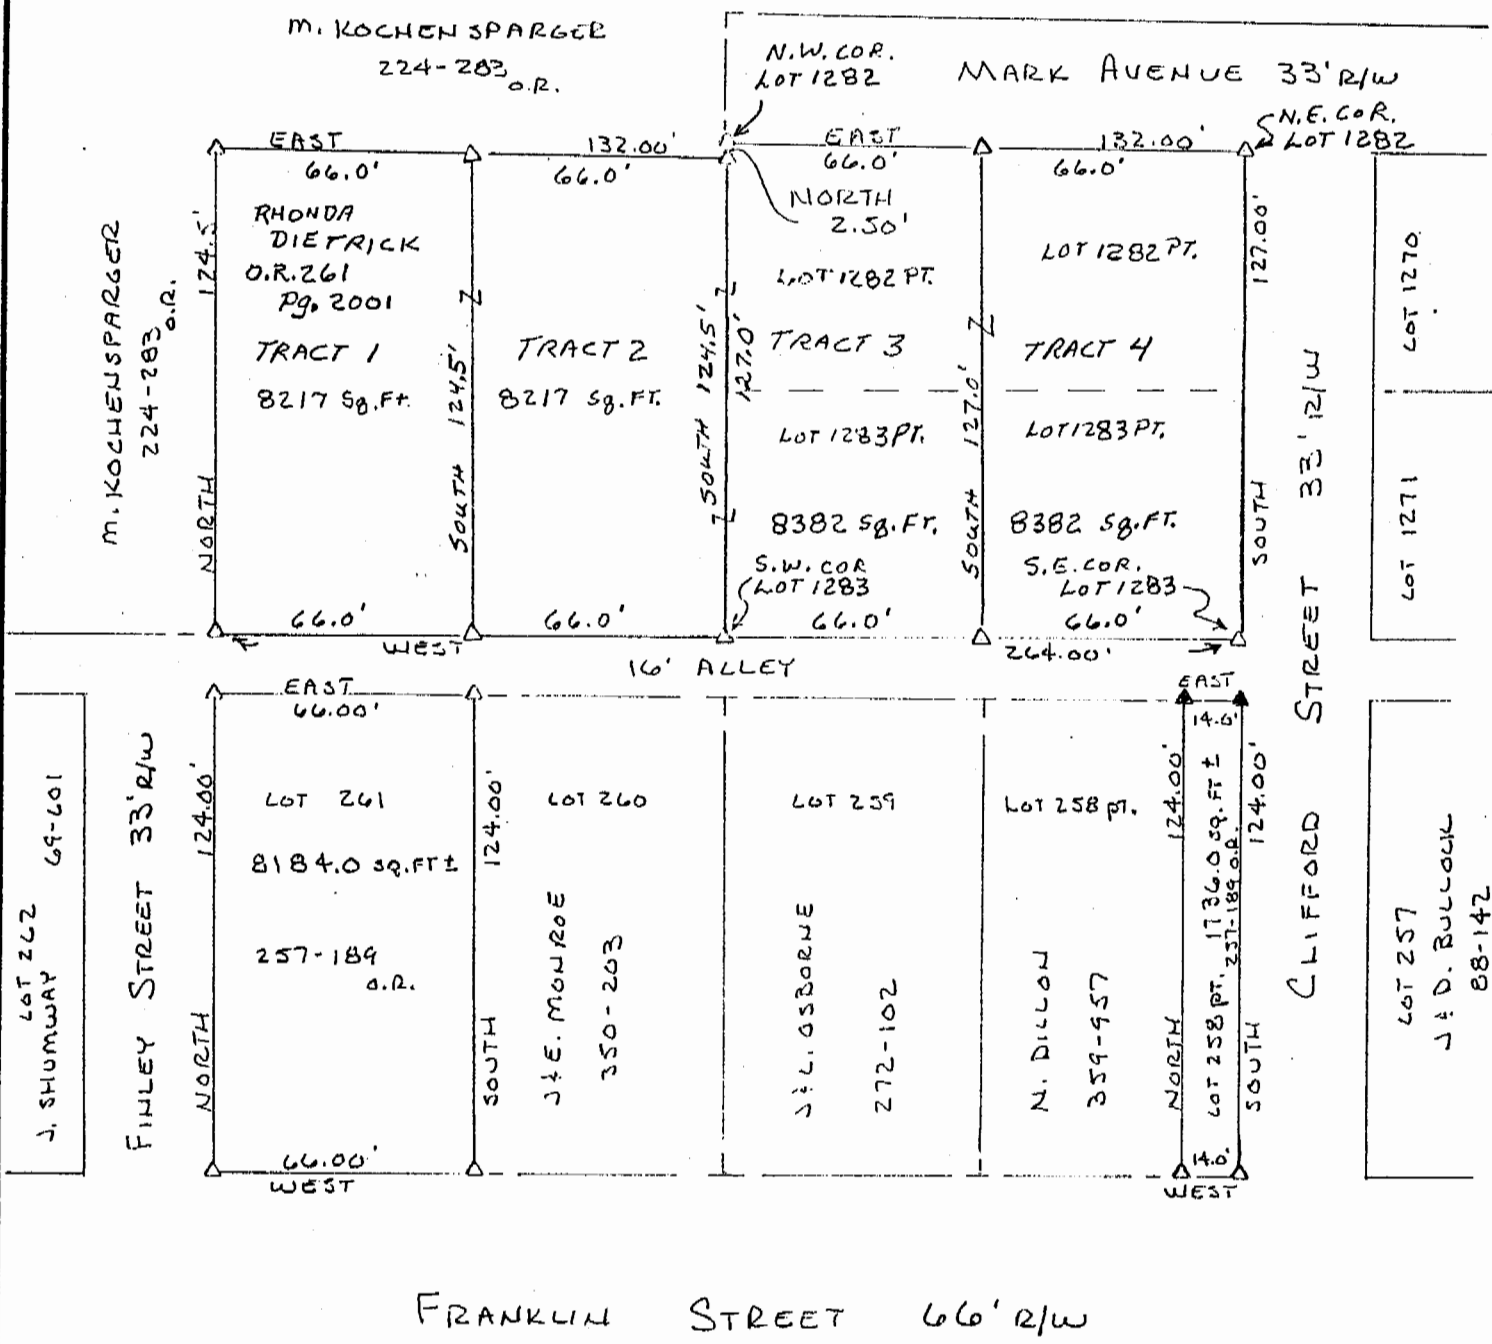 M. KOCHENSPARGER
224-283 O.R.
N.W. COR.
LOT 1282
MARK AVENUE 33' R/W
N.E. COR.
LOT 1282
EAST 132.00'
66.0' 66.0'
EAST 132.00'
66.0' 66.0'
NORTH
2.50'
M. KOCHENSPARGER
224-283 O.R.
NORTH 124.5'
RHONDA
DIETRICK
O.R. 261
Pg. 2001
TRACT 1
8217 Sq.Ft.
SOUTH 124.5'
TRACT 2
8217 Sq.FT.
SOUTH 124.5'
127.0'
LOT 1282 PT.
TRACT 3
LOT 1283 PT.
8382 Sq.FT.
S.W. COR
LOT 1283
SOUTH 127.0'
LOT 1282 PT.
TRACT 4
LOT 1283 PT.
8382 Sq.FT.
S.E. COR.
LOT 1283
SOUTH 127.00'
LOT 1270
LOT 1271
66.0' 66.0' 66.0' 66.0'
WEST 264.00'
16' ALLEY
CLIFFORD STREET 33' R/W
LOT 262
J. SHUMWAY 69-601
FINLEY STREET 33' R/W
EAST
66.00'
NORTH 124.00'
LOT 261
8184.0 SQ.FT ±
257-189
O.R.
SOUTH 124.00'
66.00'
WEST
LOT 260
J & E. MONROE
350-203
LOT 259
J & L. OSBORNE
272-102
LOT 258 PT.
N. DILLON
359-957
EAST
14.0'
NORTH 124.00'
LOT 258 PT. 1736.0 SQ. FT ±
257-189 O.R.
SOUTH 124.00'
14.0'
WEST
LOT 257
J & D. BULLOCK
88-142
FRANKLIN STREET 66' R/W